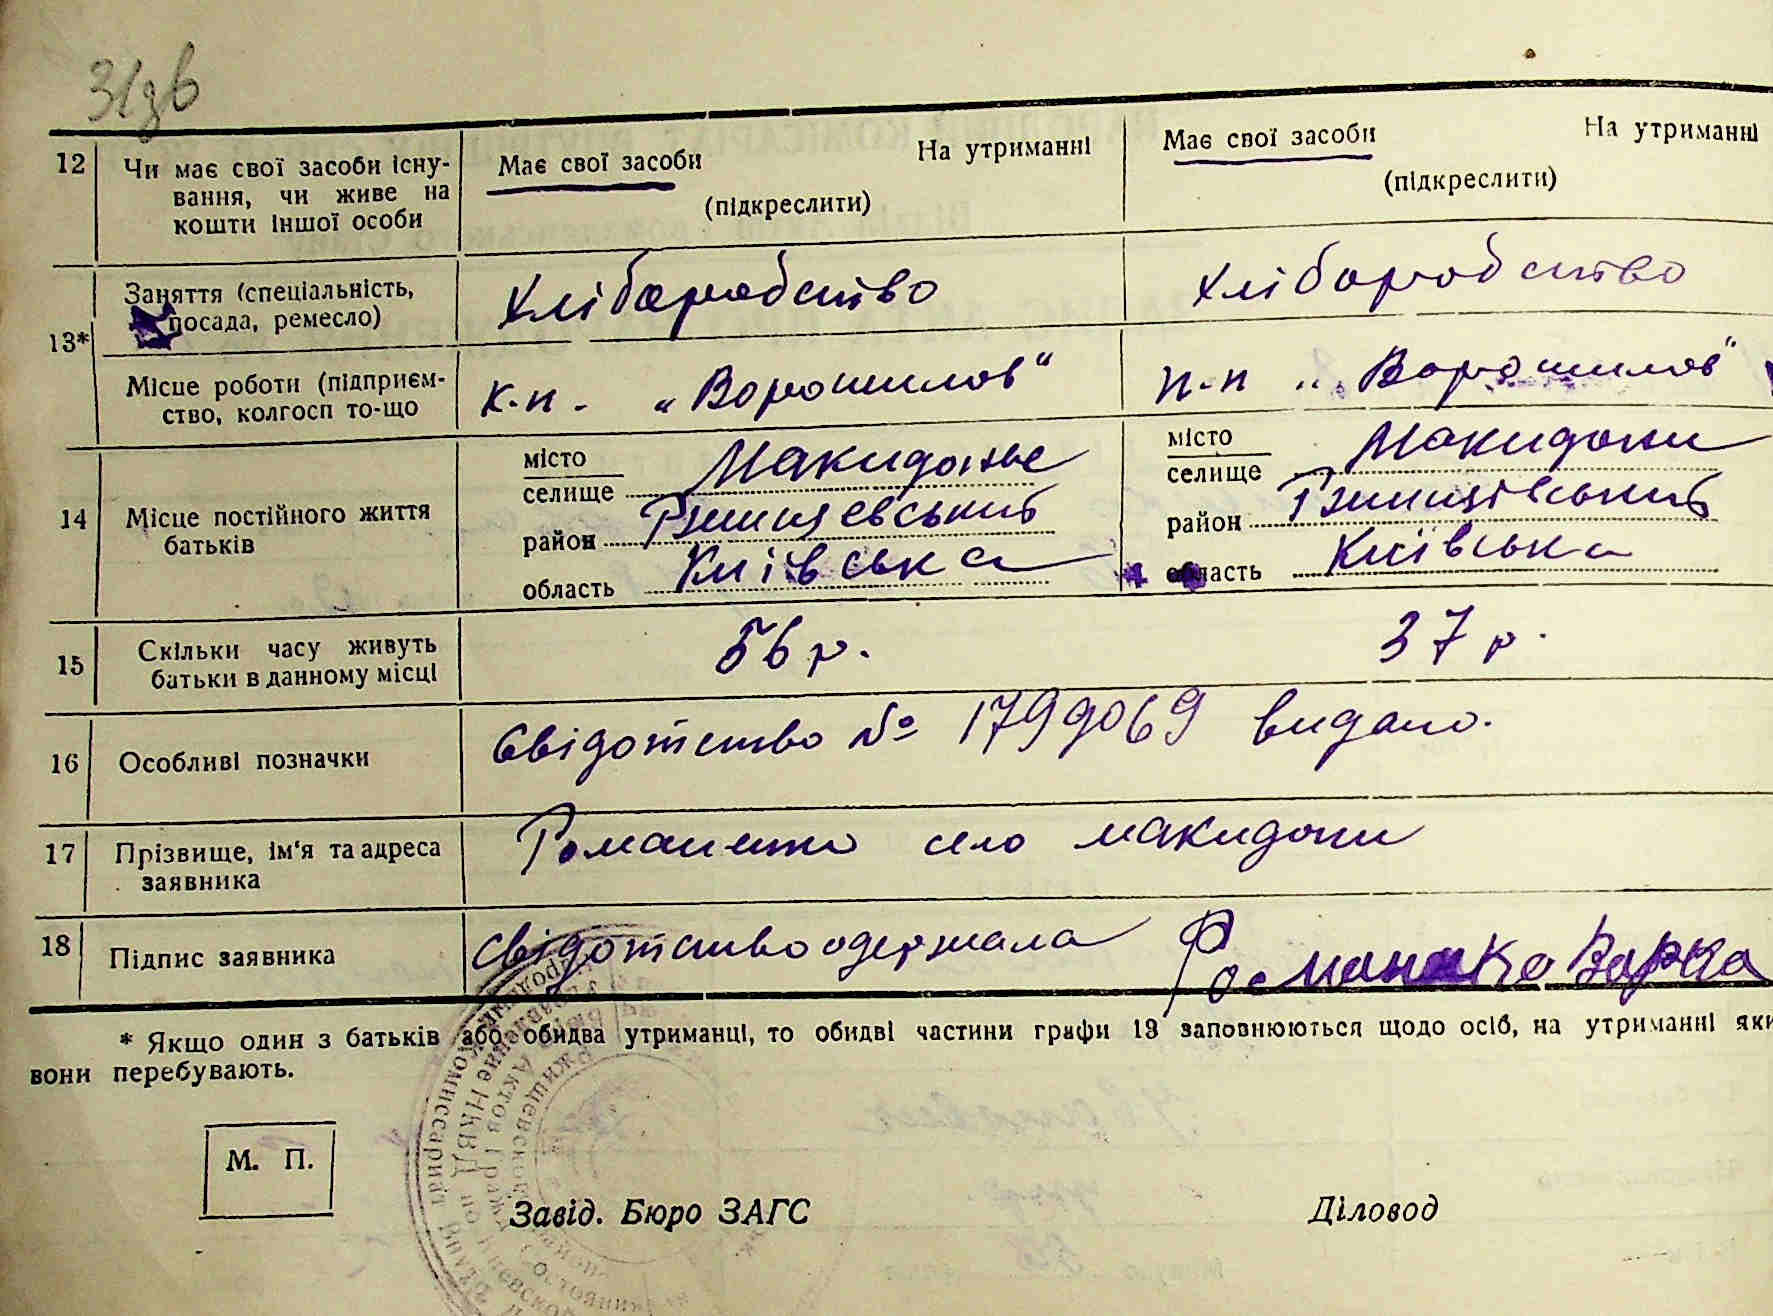 31зв
12 Чи має свої засоби існу-
вання, чи живе на
кошти іншої особи
Має свої засоби На утриманні
(підкреслити)
Має свої засоби На утриманні
(підкреслити)
13*
Заняття (спеціальність,
посада, ремесло)
Хліборобство
Хліборобство
Місце роботи (підприєм-
ство, колгосп то-що
к.п. „Ворошилов"
„Ворошилов"
14 Місце постійного життя
батьків
місто
селище Макидоне
район Ржищевський
область Київська
місто
селище Макидони
район Ржищівський
область Київська
15 Скільки часу живуть
батьки в данному місці
56 р.
37 р.
16 Особливі позначки
Свідотство № 1799069 видано.
17 Прізвище, ім'я та адреса
заявника
Романенко село макидони
18 Підпис заявника
Свідотство одержала Романенко Варка
* Якщо один з батьків або обидва утриманці, то обидві частини графи 13 заповнюються щодо осіб, на утриманні яки
вони перебувають.
М. П.
Завід. Бюро ЗАГС
Діловод